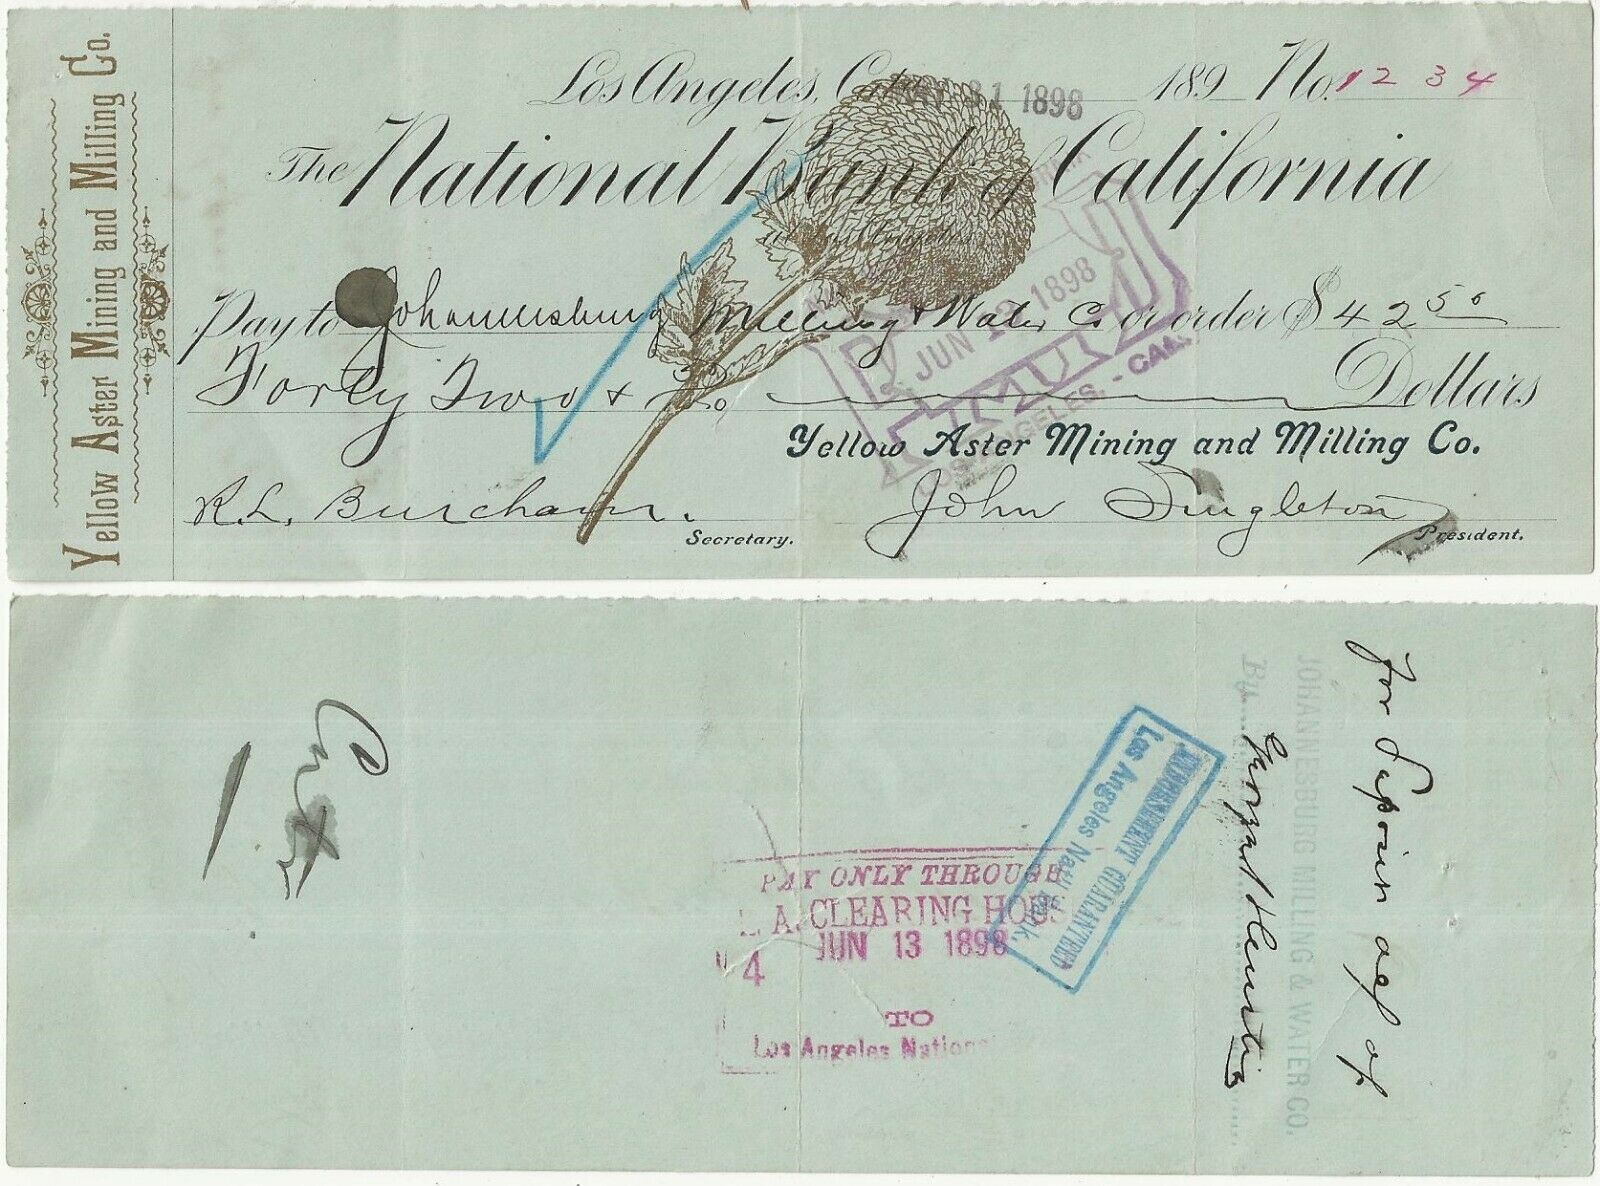 Yellow Aster Mining and Milling Co.
Los Angeles, Cal. 31 1898 189_ No. 1234
The National Bank of California
Pay to Johannesburg Milling & Water Co or order $42 50
Forty Two & 50 Dollars
JUN 13 1898
LOS ANGELES, - CAL.
Yellow Aster Mining and Milling Co.
R.L. Burcham. Secretary.
John Singleton President.
For Deposit a/c of
JOHANNESBURG MILLING & WATER CO.
By
ENDORSEMENT GUARANTEED
Los Angeles Nat'l Bank.
PAY ONLY THROUGH
L. A. CLEARING HOUSE
JUN 13 1898
4
TO
Los Angeles National